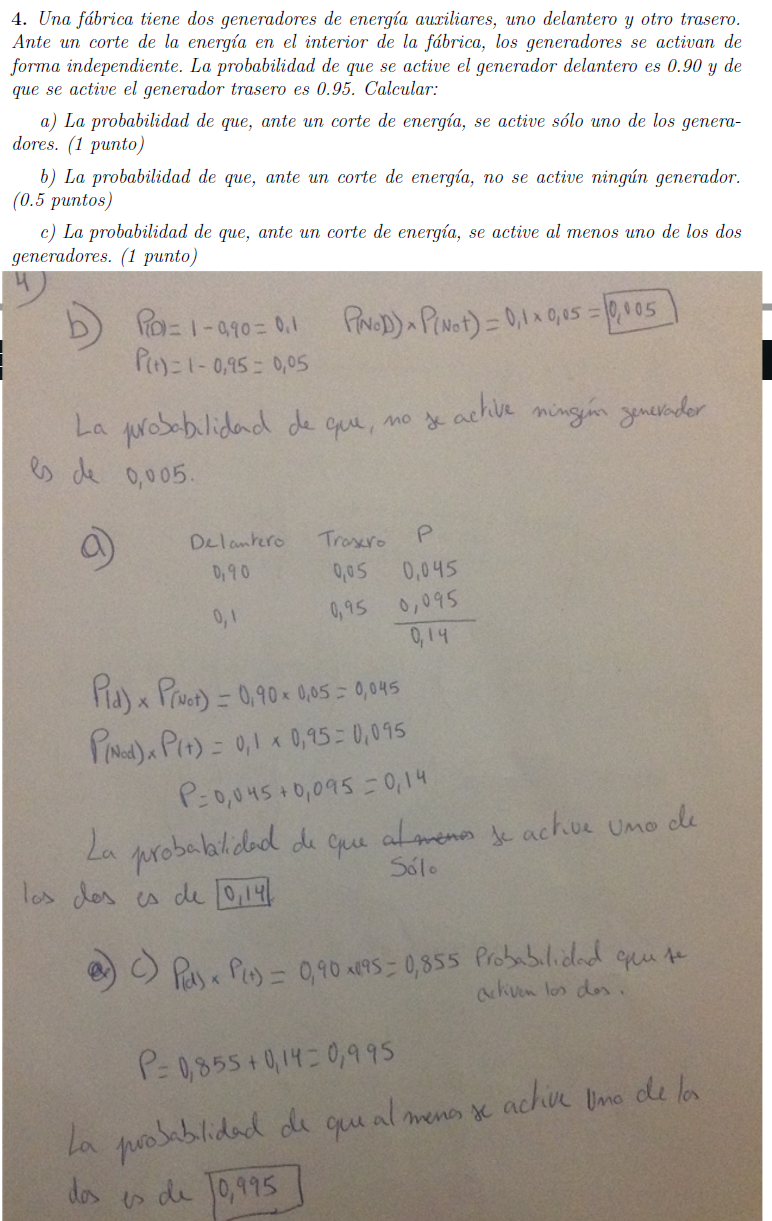 4. Una fábrica tiene dos generadores de energía auxiliares, uno delantero y otro trasero.
Ante un corte de la energía en el interior de la fábrica, los generadores se activan de
forma independiente. La probabilidad de que se active el generador delantero es 0.90 y de
que se active el generador trasero es 0.95. Calcular:
a) La probabilidad de que, ante un corte de energía, se active sólo uno de los genera-
dores. (1 punto)
b) La probabilidad de que, ante un corte de energía, no se active ningún generador.
(0.5 puntos)
c) La probabilidad de que, ante un corte de energía, se active al menos uno de los dos
generadores. (1 punto)
4)
b) P(D) = 1 - 0,90 = 0.1 P(NoD) × P(Not) = 0,1 × 0,05 = 0,005
P(t) = 1 - 0,95 = 0,05
La probabilidad de que, no se active ningún generador
es de 0,005.
a) Delantero Trasero P
0,90 0,05 0,045
0,1 0,95 0,095
0,14
P(d) × P(Not) = 0,90 × 0,05 = 0,045
P(Nod) × P(t) = 0,1 × 0,95 = 0,095
P = 0,045 + 0,095 = 0,14
La probabilidad de que al menos se active uno de
Sólo
los dos es de 0,14
a) c) P(d) × P(t) = 0,90 × 095 = 0,855 Probabilidad que se
activen los dos.
P = 0,855 + 0,14 = 0,995
La probabilidad de que al menos se active Uno de los
dos es de 0,995